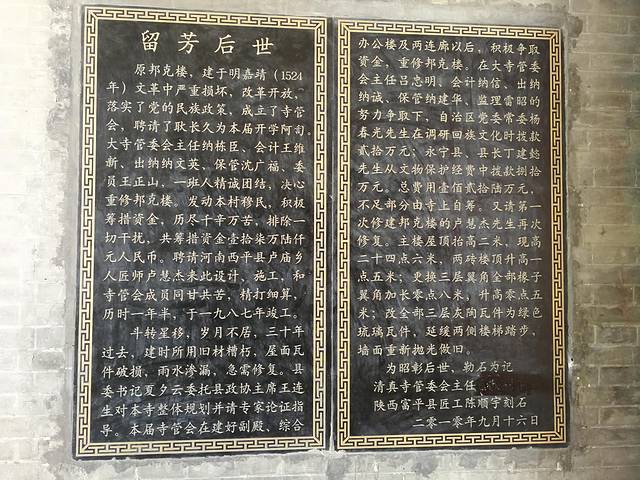 留芳后世
原邦克楼，建于明嘉靖（1524
年）文革中严重损坏，改革开放，
落实了党的民族政策，成立了寺管
会，聘请了耿长久为本届开学阿訇。
大寺管委会主任纳栋臣、会计王维
新、出纳纳文英、保管沈广福、委
员王正山，一班人精诚团结，决心
重修邦克楼。发动本村穆民，积极
筹措资金，历尽千辛万苦，排除一
切干扰，共筹措资金壹拾柒万陆仟
元人民币。聘请河南西平县卢庙乡
人匠师卢慧杰来此设计，施工，和
寺管会成员同甘共苦，精打细算，
历时一年半，于一九八七年竣工。
斗转星移，岁月不居，三十年
过去，建时所用旧材糟朽，屋面瓦
件破损，雨水渗漏，急需修复。县
委书记夏夕云委托县政协主席王连
生对本寺整体规划并请专家论证指
导。本届寺管会在建好副殿、综合
办公楼及两连廊以后，积极争取
资金，重修邦克楼。在大寺管委
会主任吕忠明、会计纳信、出纳
纳诚、保管纳建华、监理雷昭的
努力争取下，自治区党委常委杨
春光先生在调研回族文化时拨款
贰拾万元；永宁县、县长丁建懿
先生从文物保护经费中拨款捌拾
万元。总费用壹佰贰拾陆万元，
不足部分由寺上自筹。又请第一
次修建邦克楼的卢慧杰先生再次
修复。主楼屋顶抬高二米，现高
二十四点六米，两砖楼顶升高一
点五米；更换三层翼角全部椽子
翼角加长零点八米，升高零点五
米；改全部三层灰陶瓦件为绿色
琉璃瓦件，延缓两侧楼梯踏步，
墙面重新抛光做旧。
为昭彰后世，勒石为记
清真寺管委会主任
陕西富平县匠工陈顺宇刻石
二零一零年九月十六日